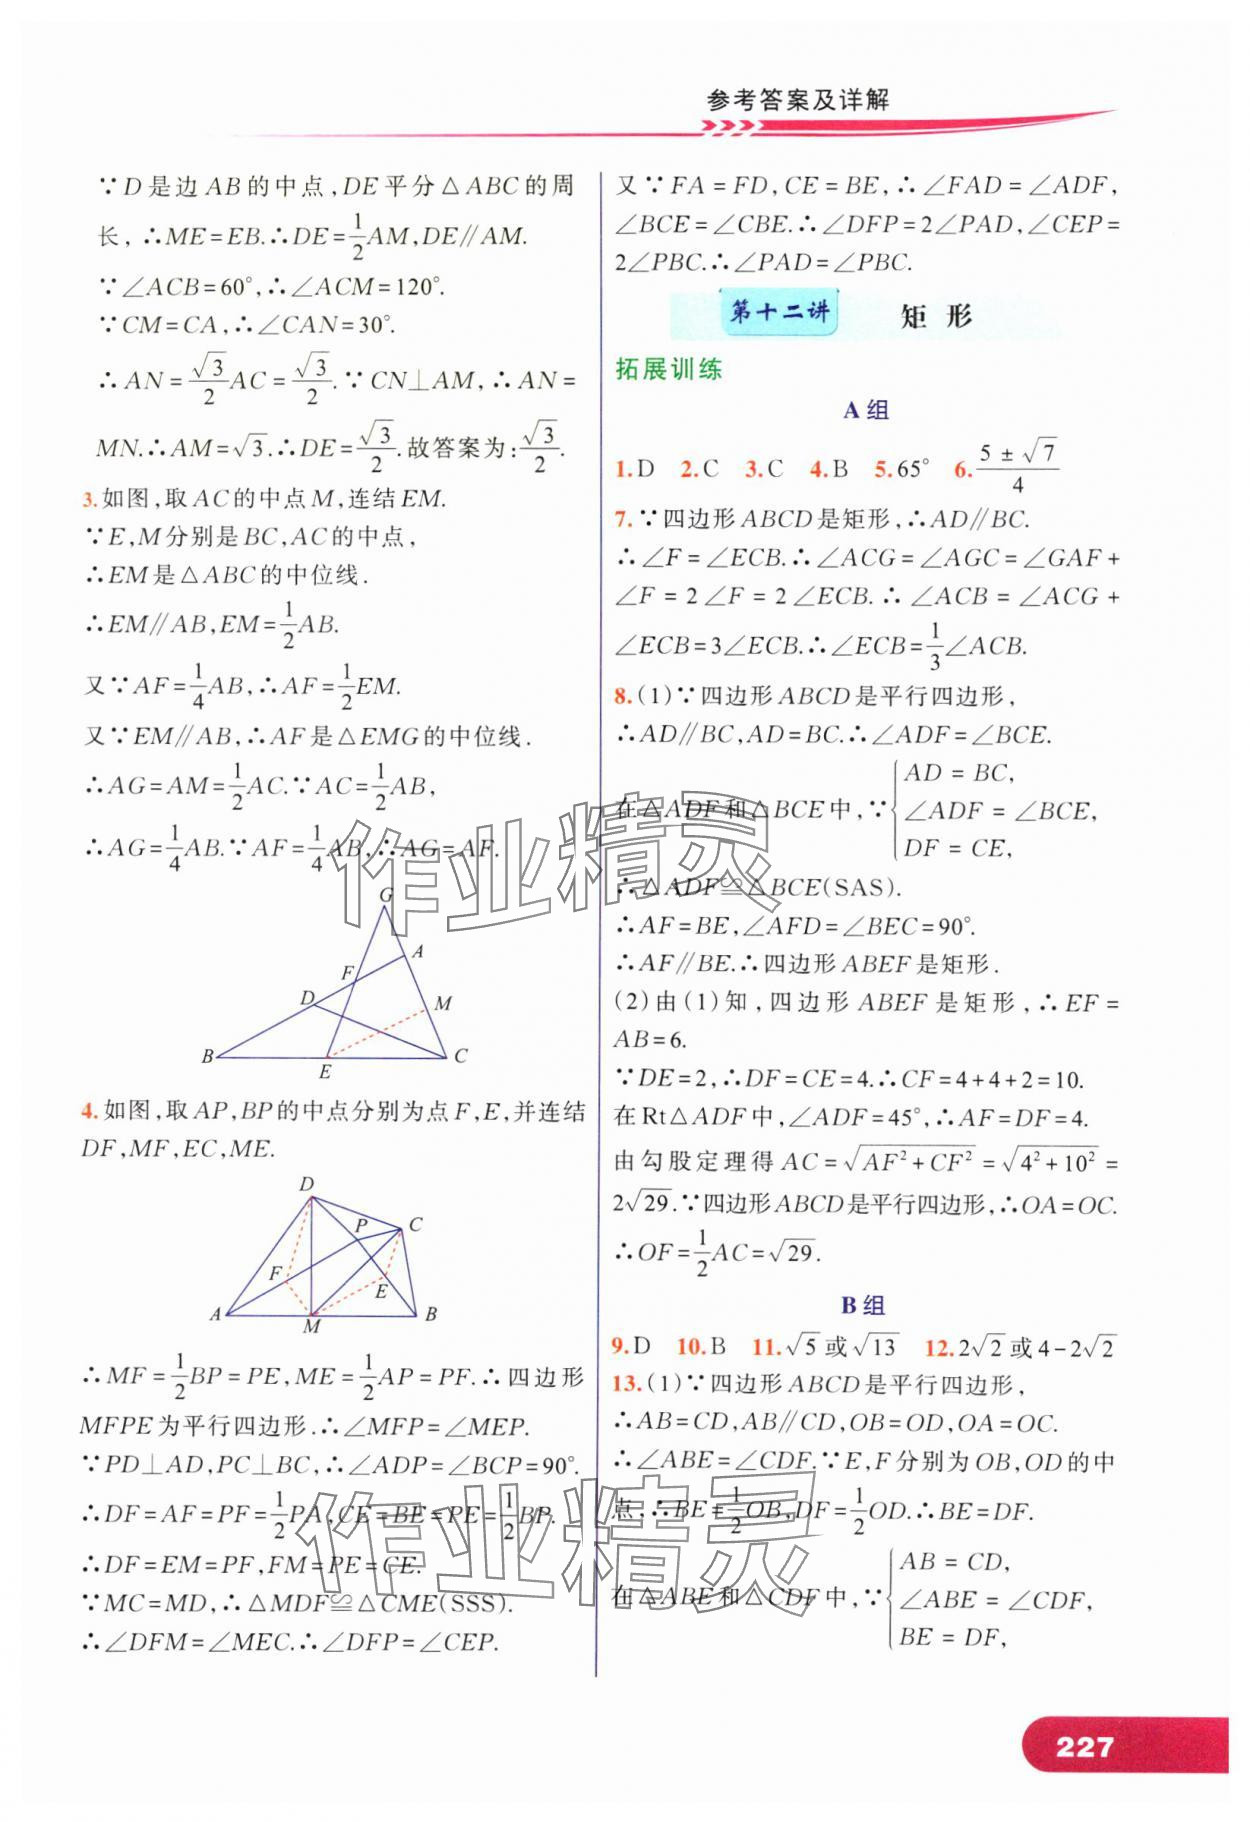 参考答案及详解
∵D是边AB的中点,DE平分△ABC的周
长,∴ME=EB.∴DE=1/2AM,DE∥AM.
∵∠ACB=60°,∴∠ACM=120°.
∵CM=CA,∴∠CAN=30°.
∴AN=√3/2AC=√3/2.∵CN⊥AM,∴AN=
MN.∴AM=√3.∴DE=√3/2.故答案为:√3/2.
3.如图,取AC的中点M,连结EM.
∵E,M分别是BC,AC的中点,
∴EM是△ABC的中位线.
∴EM∥AB,EM=1/2AB.
又∵AF=1/4AB,∴AF=1/2EM.
又∵EM∥AB,∴AF是△EMG的中位线.
∴AG=AM=1/2AC.∵AC=1/2AB,
∴AG=1/4AB.∵AF=1/4AB,∴AG=AF.
G
A
F
D
M
B
E
C
4.如图,取AP,BP的中点分别为点F,E,并连结
DF,MF,EC,ME.
D
P
C
F
E
A
M
B
∴MF=1/2BP=PE,ME=1/2AP=PF.∴四边形
MFPE为平行四边形.∴∠MFP=∠MEP.
∵PD⊥AD,PC⊥BC,∴∠ADP=∠BCP=90°.
∴DF=AF=PF=1/2PA,CE=BE=PE=1/2BP.
∴DF=EM=PF,FM=PE=CE.
∵MC=MD,∴△MDF≌△CME(SSS).
∴∠DFM=∠MEC.∴∠DFP=∠CEP.
又∵FA=FD,CE=BE,∴∠FAD=∠ADF,
∠BCE=∠CBE.∴∠DFP=2∠PAD,∠CEP=
2∠PBC.∴∠PAD=∠PBC.
第十二讲 矩形
拓展训练
A组
1.D 2.C 3.C 4.B 5.65° 6.(5±√7)/4
7.∵四边形ABCD是矩形,∴AD∥BC.
∴∠F=∠ECB.∴∠ACG=∠AGC=∠GAF+
∠F=2∠F=2∠ECB.∴∠ACB=∠ACG+
∠ECB=3∠ECB.∴∠ECB=1/3∠ACB.
8.(1)∵四边形ABCD是平行四边形,
∴AD∥BC,AD=BC.∴∠ADF=∠BCE.
AD=BC,
在△ADF和△BCE中,∵{∠ADF=∠BCE,
DF=CE,
∴△ADF≌△BCE(SAS).
∴AF=BE,∠AFD=∠BEC=90°.
∴AF∥BE.∴四边形ABEF是矩形.
(2)由(1)知,四边形ABEF是矩形,∴EF=
AB=6.
∵DE=2,∴DF=CE=4.∴CF=4+4+2=10.
在Rt△ADF中,∠ADF=45°,∴AF=DF=4.
由勾股定理得AC=√(AF²+CF²)=√(4²+10²)=
2√29.∵四边形ABCD是平行四边形,∴OA=OC.
∴OF=1/2AC=√29.
B组
9.D 10.B 11.√5或√13 12.2√2或4-2√2
13.(1)∵四边形ABCD是平行四边形,
∴AB=CD,AB∥CD,OB=OD,OA=OC.
∴∠ABE=∠CDF.∵E,F分别为OB,OD的中
点,∴BE=1/2OB,DF=1/2OD.∴BE=DF.
AB=CD,
在△ABE和△CDF中,∵{∠ABE=∠CDF,
BE=DF,
227
作业精灵
作业精灵